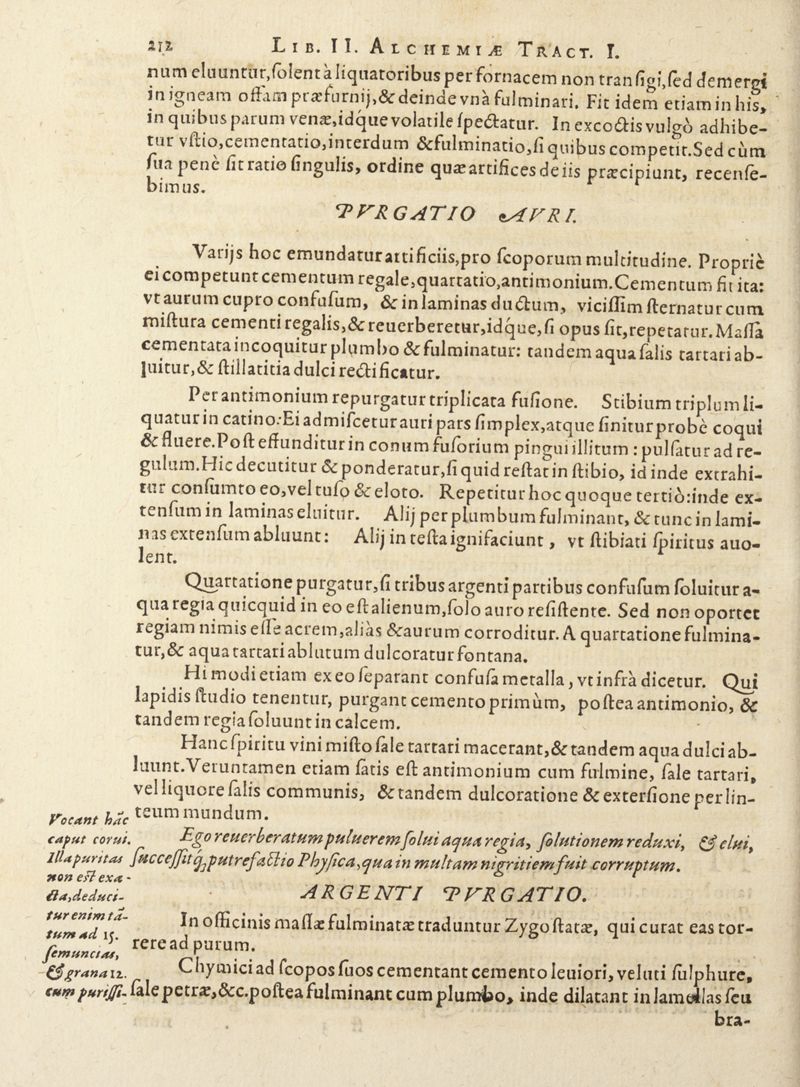 212 LIB. II. ALCHEMIÆ TRACT. I.
num eluuntur,ſolent à liquatoribus per fornacem non tranſigi,ſed demergi
in igneam offam præfurnij,& deinde vnà fulminari. Fit idem etiam in his,
in quibus parum venæ,idque volatile ſpectatur. In excoctis vulgò adhibe-
tur vſtio,cementatio,interdum &fulminatio,ſi quibus competit.Sed cùm
ſua penè ſit ratio ſingulis, ordine quæ artifices de iis præcipiunt, recenſe-
bimus.
PVRGATIO AVRI.
Varijs hoc emundatur artificiis,pro ſcoporum multitudine. Propriè
ei competunt cementum regale,quartatio,antimonium.Cementum fit ita:
vt aurum cupro confuſum, & in laminas ductum, viciſſim ſternatur cum
miſtura cementi regalis,& reuerberetur,idque,ſi opus ſit,repetatur.Maſſa
cementata incoquitur plumbo & fulminatur: tandem aqua ſalis tartari ab-
luitur,& ſtillatitia dulci rectificatur.
Per antimonium repurgatur triplicata fuſione. Stibium triplum li-
quatur in catino:Ei admiſcetur auri pars ſimplex,atque ſinitur probè coqui
& fluere.Poſt effunditur in conum fuſorium pingui illitum : pulſatur ad re-
gulum.Hic decutitur & ponderatur,ſi quid reſtat in ſtibio, id inde extrahi-
tur conſumto eo,vel tuſo & eloto. Repetitur hoc quoque tertiò:inde ex-
tenſum in laminas eluitur. Alij per plumbum fulminant, & tunc in lami-
nas extenſum abluunt: Alij in teſta ignifaciunt, vt ſtibiati ſpiritus auo-
lent.
Quartatione purgatur,ſi tribus argenti partibus confuſum ſoluitur a-
qua regia quicquid in eo eſt alienum,ſolo auro reſiſtente. Sed non oportet
regiam nimis eſſe acrem,aliàs & aurum corroditur. A quartatione fulmina-
tur,& aqua tartari ablutum dulcoratur fontana.
Hi modi etiam ex eo ſeparant confuſa metalla,vt infrà dicetur. Qui
lapidis ſtudio tenentur, purgant cemento primùm, poſtea antimonio, &
tandem regia ſoluunt in calcem.
Hanc ſpiritu vini miſto ſale tartari macerant,& tandem aqua dulci ab-
luunt.Veruntamen etiam ſatis eſt antimonium cum fulmine, ſale tartari,
vel liquore ſalis communis, & tandem dulcoratione & exterſione per lin-
teum mundum.
Vocant hãc
caput corui.
Illa puritas
non eſt exa-
cta,deduci-
tur enim tã-
tum ad 15.
ſemuncias,
& grana 12.
cum puriſſi-
Ego reuerberatum puluerem ſolui aqua regia, ſolutionem reduxi, & elui,
ſucceſſitq; putrefactio Phyſica,qua in multam nigritiem fuit corruptum.
ARGENTI PVRGATIO.
In officinis maſſæ fulminatæ traduntur Zygoſtatæ, qui curat eas tor-
rere ad purum.
Chymici ad ſcopos ſuos cementant cemento leuiori, veluti ſulphure,
ſale petræ,&c.poſtea fulminant cum plumbo, inde dilatant in lamellas ſeu
bra-